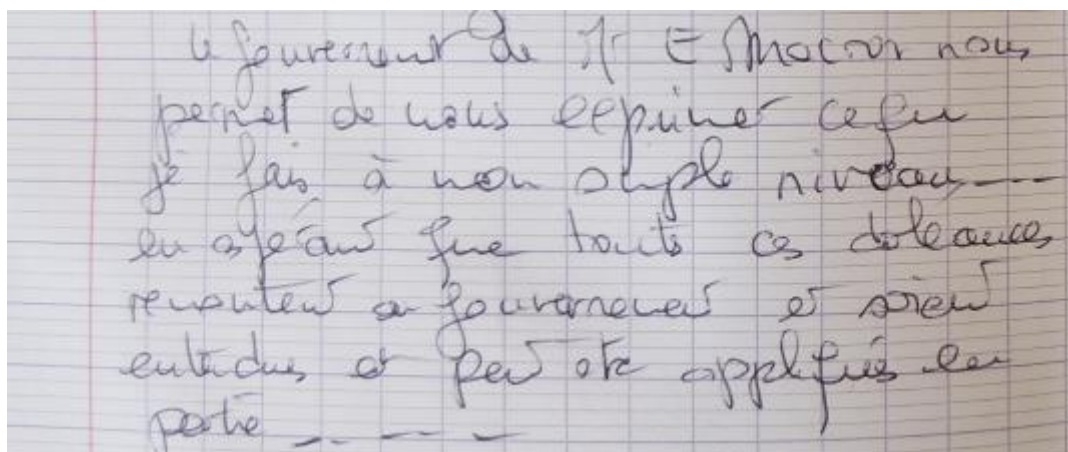 le gouvernement de Mr E Macron nous
permet de nous exprimer ce que
je fais à mon simple niveau ----
en espérant que toute ces doléances
remontent au gouvernement et soient
entendus et peut etre appliqués en
partie -----